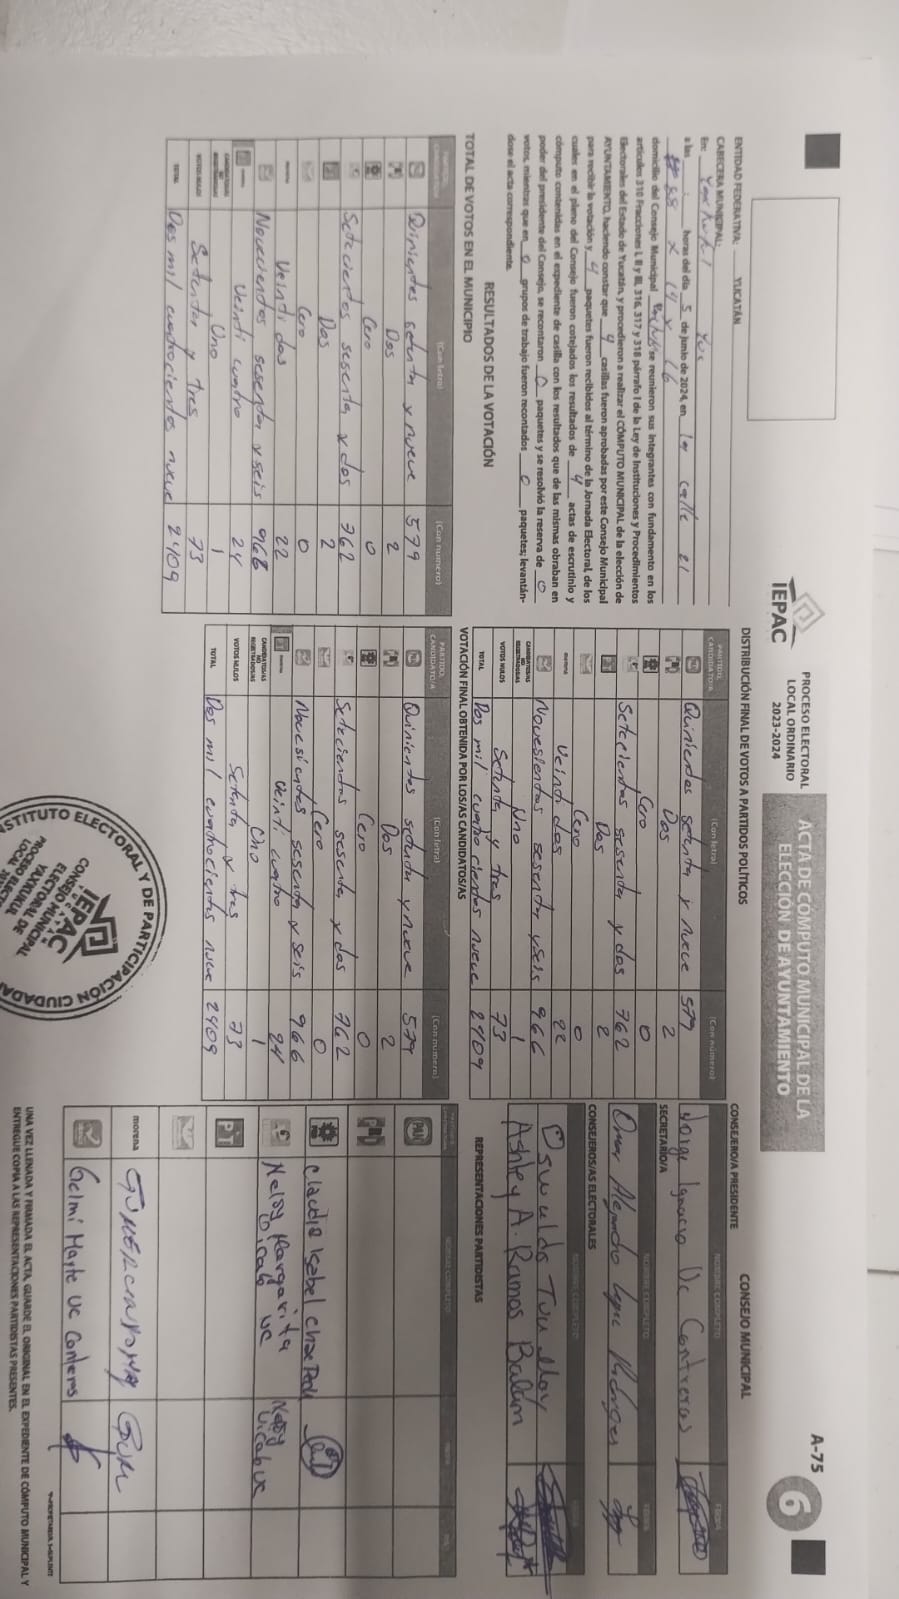 IEPAC
PROCESO ELECTORAL
LOCAL ORDINARIO
2023-2024
ACTA DE CÓMPUTO MUNICIPAL DE LA
ELECCIÓN DE AYUNTAMIENTO
A-75
6
ENTIDAD FEDERATIVA: YUCATÁN
CABECERA MUNICIPAL:
En: Yaxkukul Yuc
a las horas del día 5 de junio de 2024, en la calle el
# 88 x 14 x 16
domicilio del Consejo Municipal se reunieron sus integrantes con fundamento en los
artículos 310 Fracciones I, II y III, 316, 317 y 318 párrafo I de la Ley de Instituciones y Procedimientos
Electorales del Estado de Yucatán, y procedieron a realizar el CÓMPUTO MUNICIPAL de la elección de
AYUNTAMIENTO, haciendo constar que 4 casillas fueron aprobadas por este Consejo Municipal
para recibir la votación y 4 paquetes fueron recibidos al término de la Jornada Electoral, de los
cuales en el pleno del Consejo fueron cotejados los resultados de 4 actas de escrutinio y
cómputo contenidas en el expediente de casilla con los resultados que de las mismas obraban en
poder del presidente del Consejo, se recontaron 0 paquetes y se resolvió la reserva de 0
votos, mientras que en 0 grupos de trabajo fueron recontados 0 paquetes; levantán-
dose el acta correspondiente.
RESULTADOS DE LA VOTACIÓN
TOTAL DE VOTOS EN EL MUNICIPIO
(Con letra) (Con número)
Quinientos setenta y nueve 579
Dos 2
Cero 0
Setecientos sesenta y dos 762
Dos 2
Cero 0
morena Veintidos 22
Novecientos sesenta y seis 966
Veinti cuatro 24
CANDIDATURAS NO REGISTRADAS Uno 1
VOTOS NULOS Setenta y tres 73
TOTAL Dos mil cuatrocientos nueve 2409
DISTRIBUCIÓN FINAL DE VOTOS A PARTIDOS POLÍTICOS
PARTIDO, CANDIDATO/A (Con letra) (Con número)
Quinientos setenta y nueve 579
Dos 2
Cero 0
Setecientos sesenta y dos 762
Dos 2
Cero 0
morena Veinti dos 22
Novesientos sesenta y seis 966
CANDIDATURAS NO REGISTRADAS Uno 1
VOTOS NULOS Setenta y tres 73
TOTAL Dos mil cuatro cientos nueve 2409
VOTACIÓN FINAL OBTENIDA POR LOS/AS CANDIDATOS/AS
PARTIDO, CANDIDATO/A (Con letra) (Con número)
Quinientos setenta y nueve 579
Dos 2
Cero 0
Setecientos sesenta y dos 762
Cero 0
Novesientos sesenta y seis 966
Veinti cuatro 24
CANDIDATURAS NO REGISTRADAS Uno 1
VOTOS NULOS Setenta y tres 73
TOTAL Dos mil cuatrocientos nueve 2409
CONSEJO MUNICIPAL
CONSEJERO/A PRESIDENTE NOMBRE COMPLETO FIRMA
Jorge Ignacio Uc Contreras
SECRETARIO/A NOMBRE COMPLETO FIRMA
Omar Alejandro
CONSEJEROS/AS ELECTORALES NOMBRE COMPLETO
Oswaldo
Ashley A. Ramos Balam
REPRESENTACIONES PARTIDISTAS
NOMBRE COMPLETO
PAN
PRD
Claudia Isabel
Nelsy Margarita Dicab Uc
PT
morena
Gelmi Mayte Uc Contreras
*P=PROPIETARIO/A, S=SUPLENTE
UNA VEZ LLENADA Y FIRMADA EL ACTA, GUARDE EL ORIGINAL EN EL EXPEDIENTE DE CÓMPUTO MUNICIPAL Y
ENTREGUE COPIA A LAS REPRESENTACIONES PARTIDISTAS PRESENTES.
INSTITUTO ELECTORAL Y DE PARTICIPACIÓN CIUDADANA
IEPAC
YUCATÁN
CONSEJO MUNICIPAL
ELECTORAL DE
YAXKUKUL
PROCESO ELECTORAL